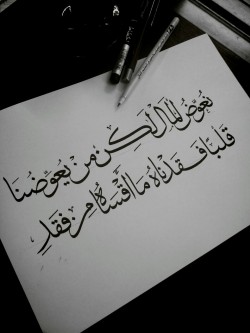 نُعوِّضُ المالَ لٰكِنْ مَنْ يُعوِّضُنا
قلبًا فقدْناهُ ما أقْسَاهُ مِن فَقدِ